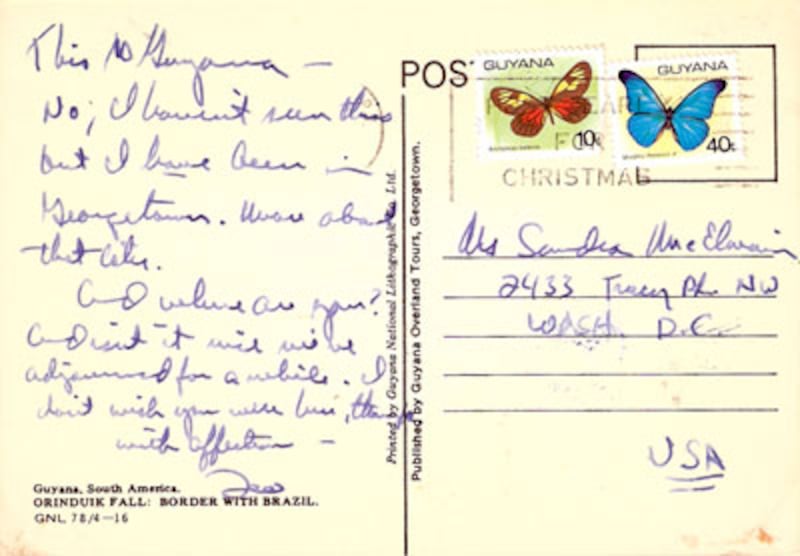 This is Guyana —
No, I haven't seen this
but I have been in
Georgetown. More about
that later.
And where are you?
And isn't it nice we've
adjourned for a while. I
don't wish you were here, though
with affection —
Guyana, South America.
ORINDUIK FALL: BORDER WITH BRAZIL.
GNL 78/4—16
POS
Printed by Guyana National Lithographic Co. Ltd.
Published by Guyana Overland Tours, Georgetown.
GUYANA
10c
GUYANA
40c
EARLY
FOR
CHRISTMAS
Ms Sandra McElwain
2433 Tracy Pl. NW
WASH D.C.
USA